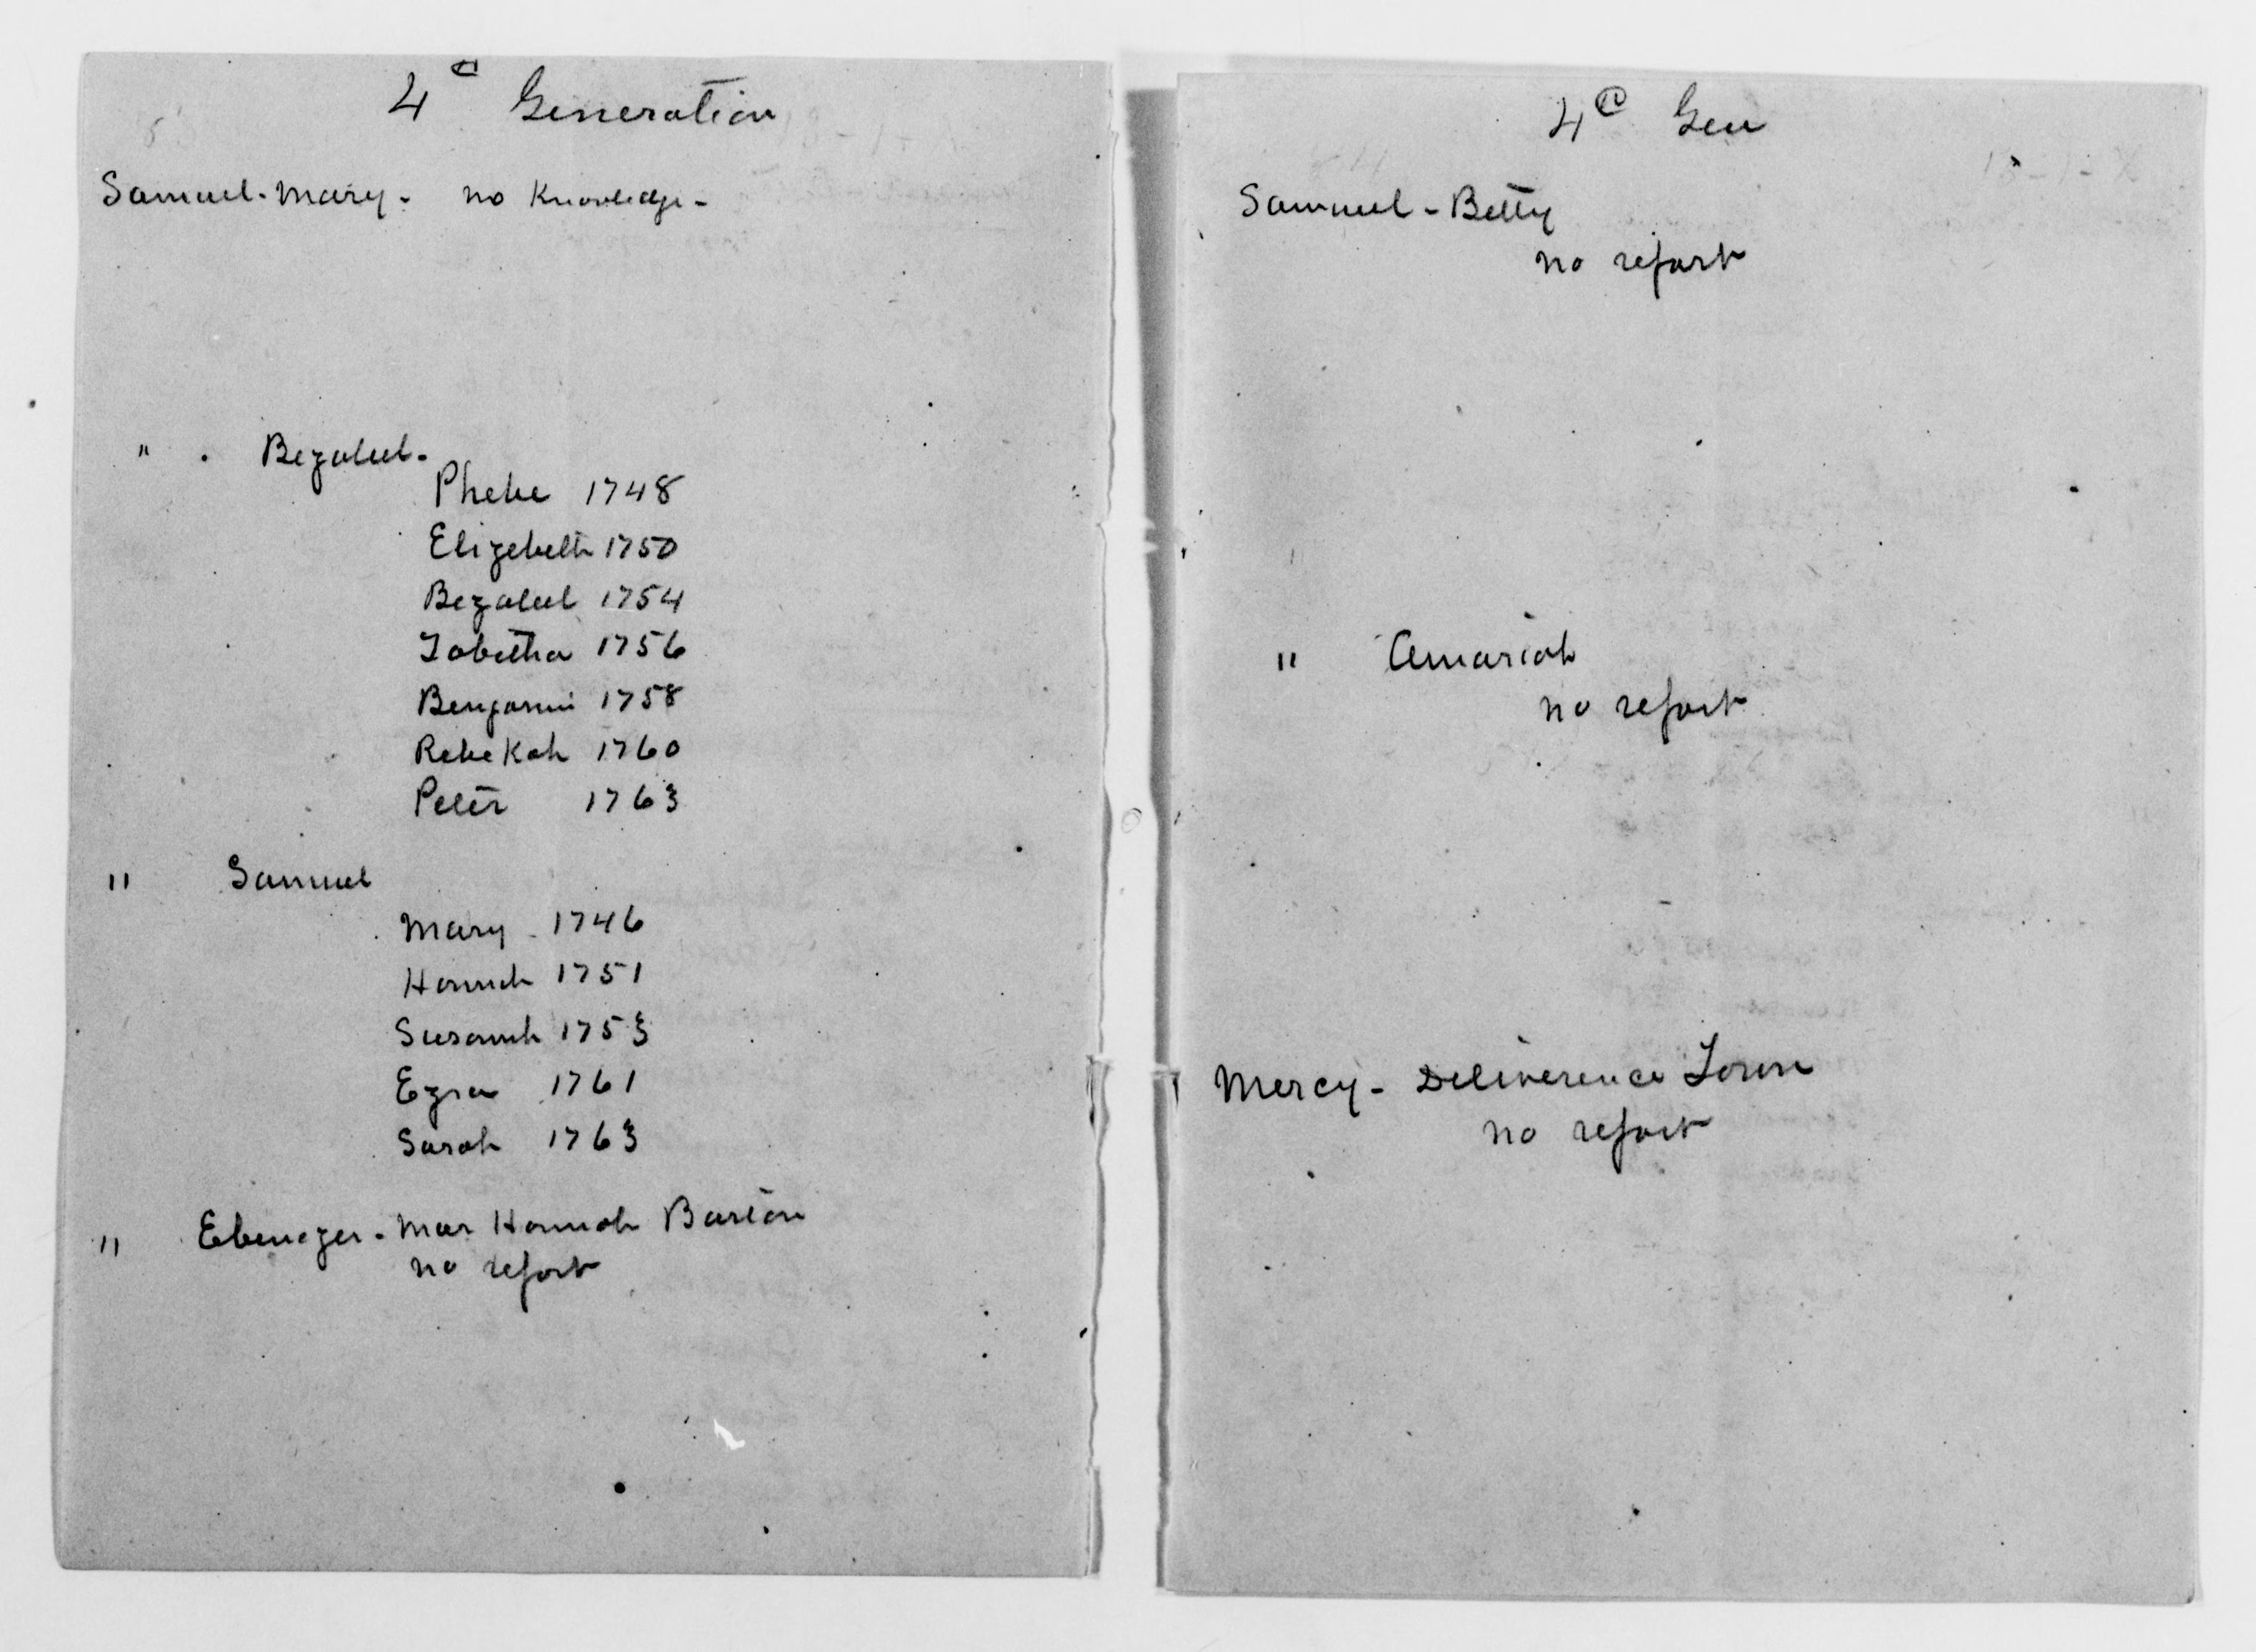 4th Generation
Samuel - Mary - no Knowledge -
" - Bezaleel -
Phebe 1748
Elizebeth 1750
Bezaleel 1754
Tabetha 1756
Benjamin 1758
Rebekah 1760
Peter 1763
" Samuel
Mary - 1746
Hannah 1751
Susannah 1753
Ezra 1761
Sarah 1763
" Ebenezer - Mar Hannah Barton
no report
4th Gen
Samuel - Betty
no report
" Amariah
no report
Mercy - Deliverence Town
no report